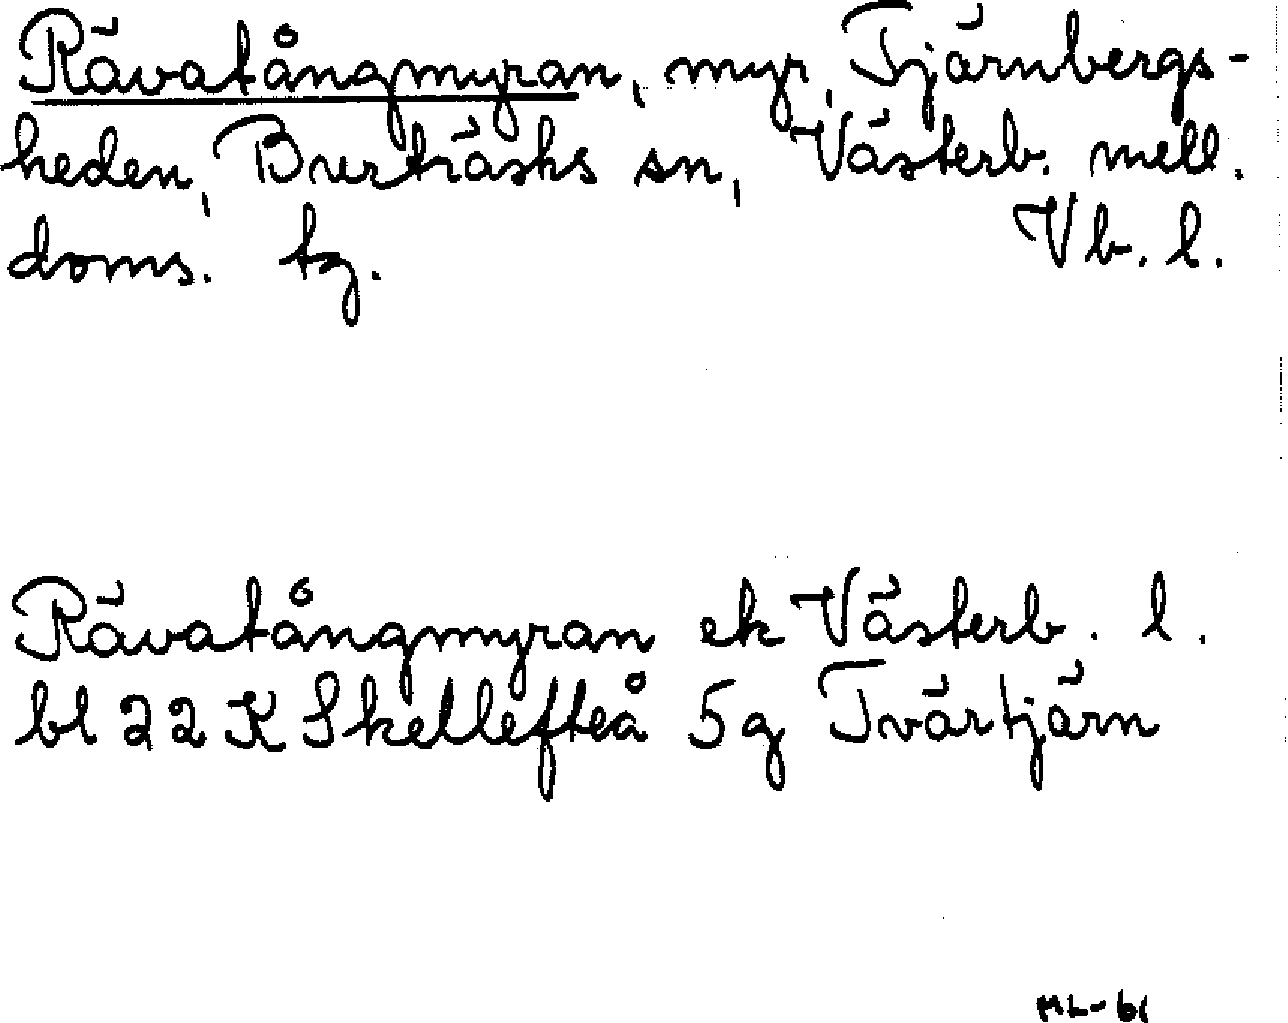 Rävatångmyran, myr, Tjärnbergs-
heden, Burträsks sn, Västerb. mell.
doms. tg. Vb. l.
Rävatångmyran ek Västerb. l.
bl 22 K Skellefteå 5g Tvärtjärn
ML-61